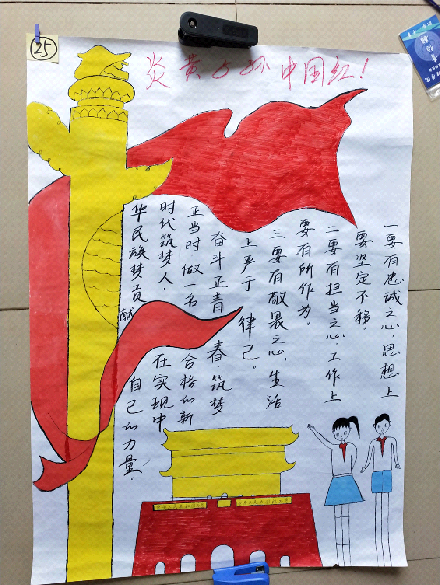 25
炎黄子孙中国红!
一要有忠诚之心,思想上
要坚定不移
二要有担当之心,工作上
要有所作为。
三要有敬畏之心,生活
上严于律己。
奋斗正青春筑梦
正当时做一名合格的新
时代筑梦人,在实现中
华民族梦贡献自己的力量!